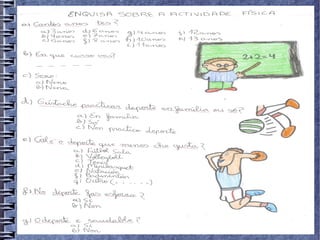 ENQUISA SOBRE A ACTIVIDADE FÍSICA
a) Cantos anos tes?
a) 3 anos d) 6 anos g) 9 anos j) 12 anos
b) 4 anos e) 7 anos h) 10 anos k) 13 anos
c) 5 anos f) 8 anos i) 11 anos
b) En que curso vas?
2+2=4
c) Sexo:
a) Neno
b) Nena
d) Gústache practicar deporte en familia ou só?
a) En familia
b) Só
c) Non practico deporte
e) Cal é o deporte que menos che gusta?
a) Fútbol Sala
b) Volleyball
c) Tenis
d)
e) Natación
f) Badminton
g) Outro (......)
f) No deporte fas esforzo?
a) Si
b) Non
g) O deporte é saudable?
a) Si
b) Non